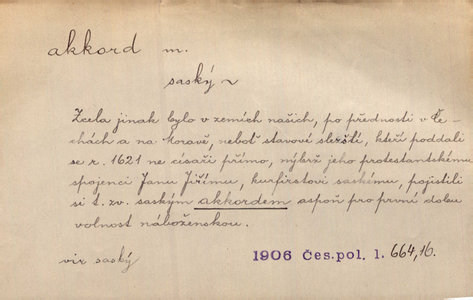 akkord m.
saský ~
Zcela jinak bylo v zemích našich, po přednosti v Če-
chách a na Moravě, neboť stavové slezští, kteří poddali
se r. 1621 ne císaři přímo, nýbrž jeho protestantskému
spojenci Janu Jiřímu, kurfirstovi saskému, pojistili
si t. zv. saským akkordem aspoň pro první dobu
volnost náboženskou.
viz saský
1906 Čes. pol. 1. 664,16.